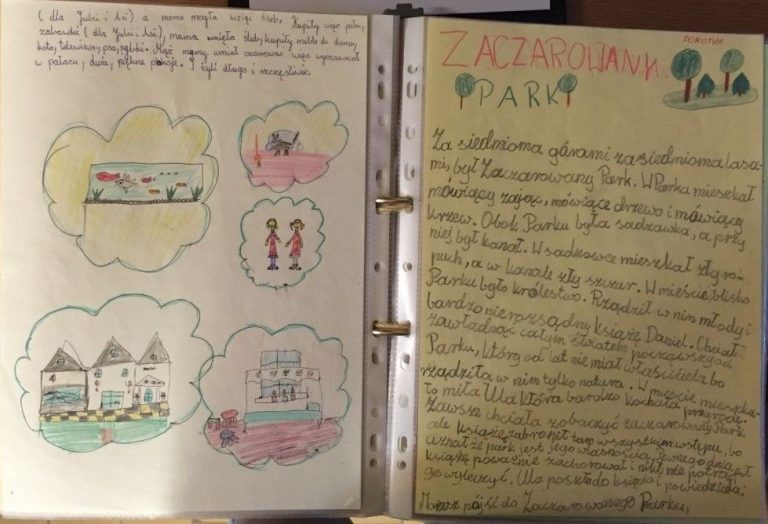 (dla Julci i Asi) a mama mogła wziąć ślub. Kupiły więc psa,
zabawki (dla Julci i Asi), mama wzięła ślub, kupiły meble do domu,
kota, telewizor, psa, rybki. Mąż mamy umiał czarować więc wyczarował
w pałacu, duże, piękne pokoje. I żyli długo i szczęśliwie.
DOROTKA
ZACZAROWANY
PARK
Za siedmioma górami za siedmioma lasa-
mi, był Zaczarowany Park. W Parku mieszkał
mówiący zając, mówiące drzewo i mówiący
krzew. Obok Parku była sadzawka, a przy
niej był kanał. W sadzawce mieszkał zły ro-
puch, a w kanale zły szczur. W mieście, blisko
Parku było królestwo. Rządził w nim młody i
bardzo nierozsądny książę Daniel. Chciał
zawładnąć całym światem począwszy od
Parku, który od lat nie miał właściciela bo
rządziła w nim tylko natura. W mieście mieszka-
ła miła Ula która bardzo kochała przyrodę.
Zawsze chciała zobaczyć zaczarowany park
ale książę zabronił tam wszystkim wstępu, bo
uznał że park jest jego własnością. Pewnego dnia
książę poważnie zachorował i nikt nie potrafił
go wyleczyć. Ula poszła do księcia i powiedziała:
Możesz pójść do Zaczarowanego Parku,